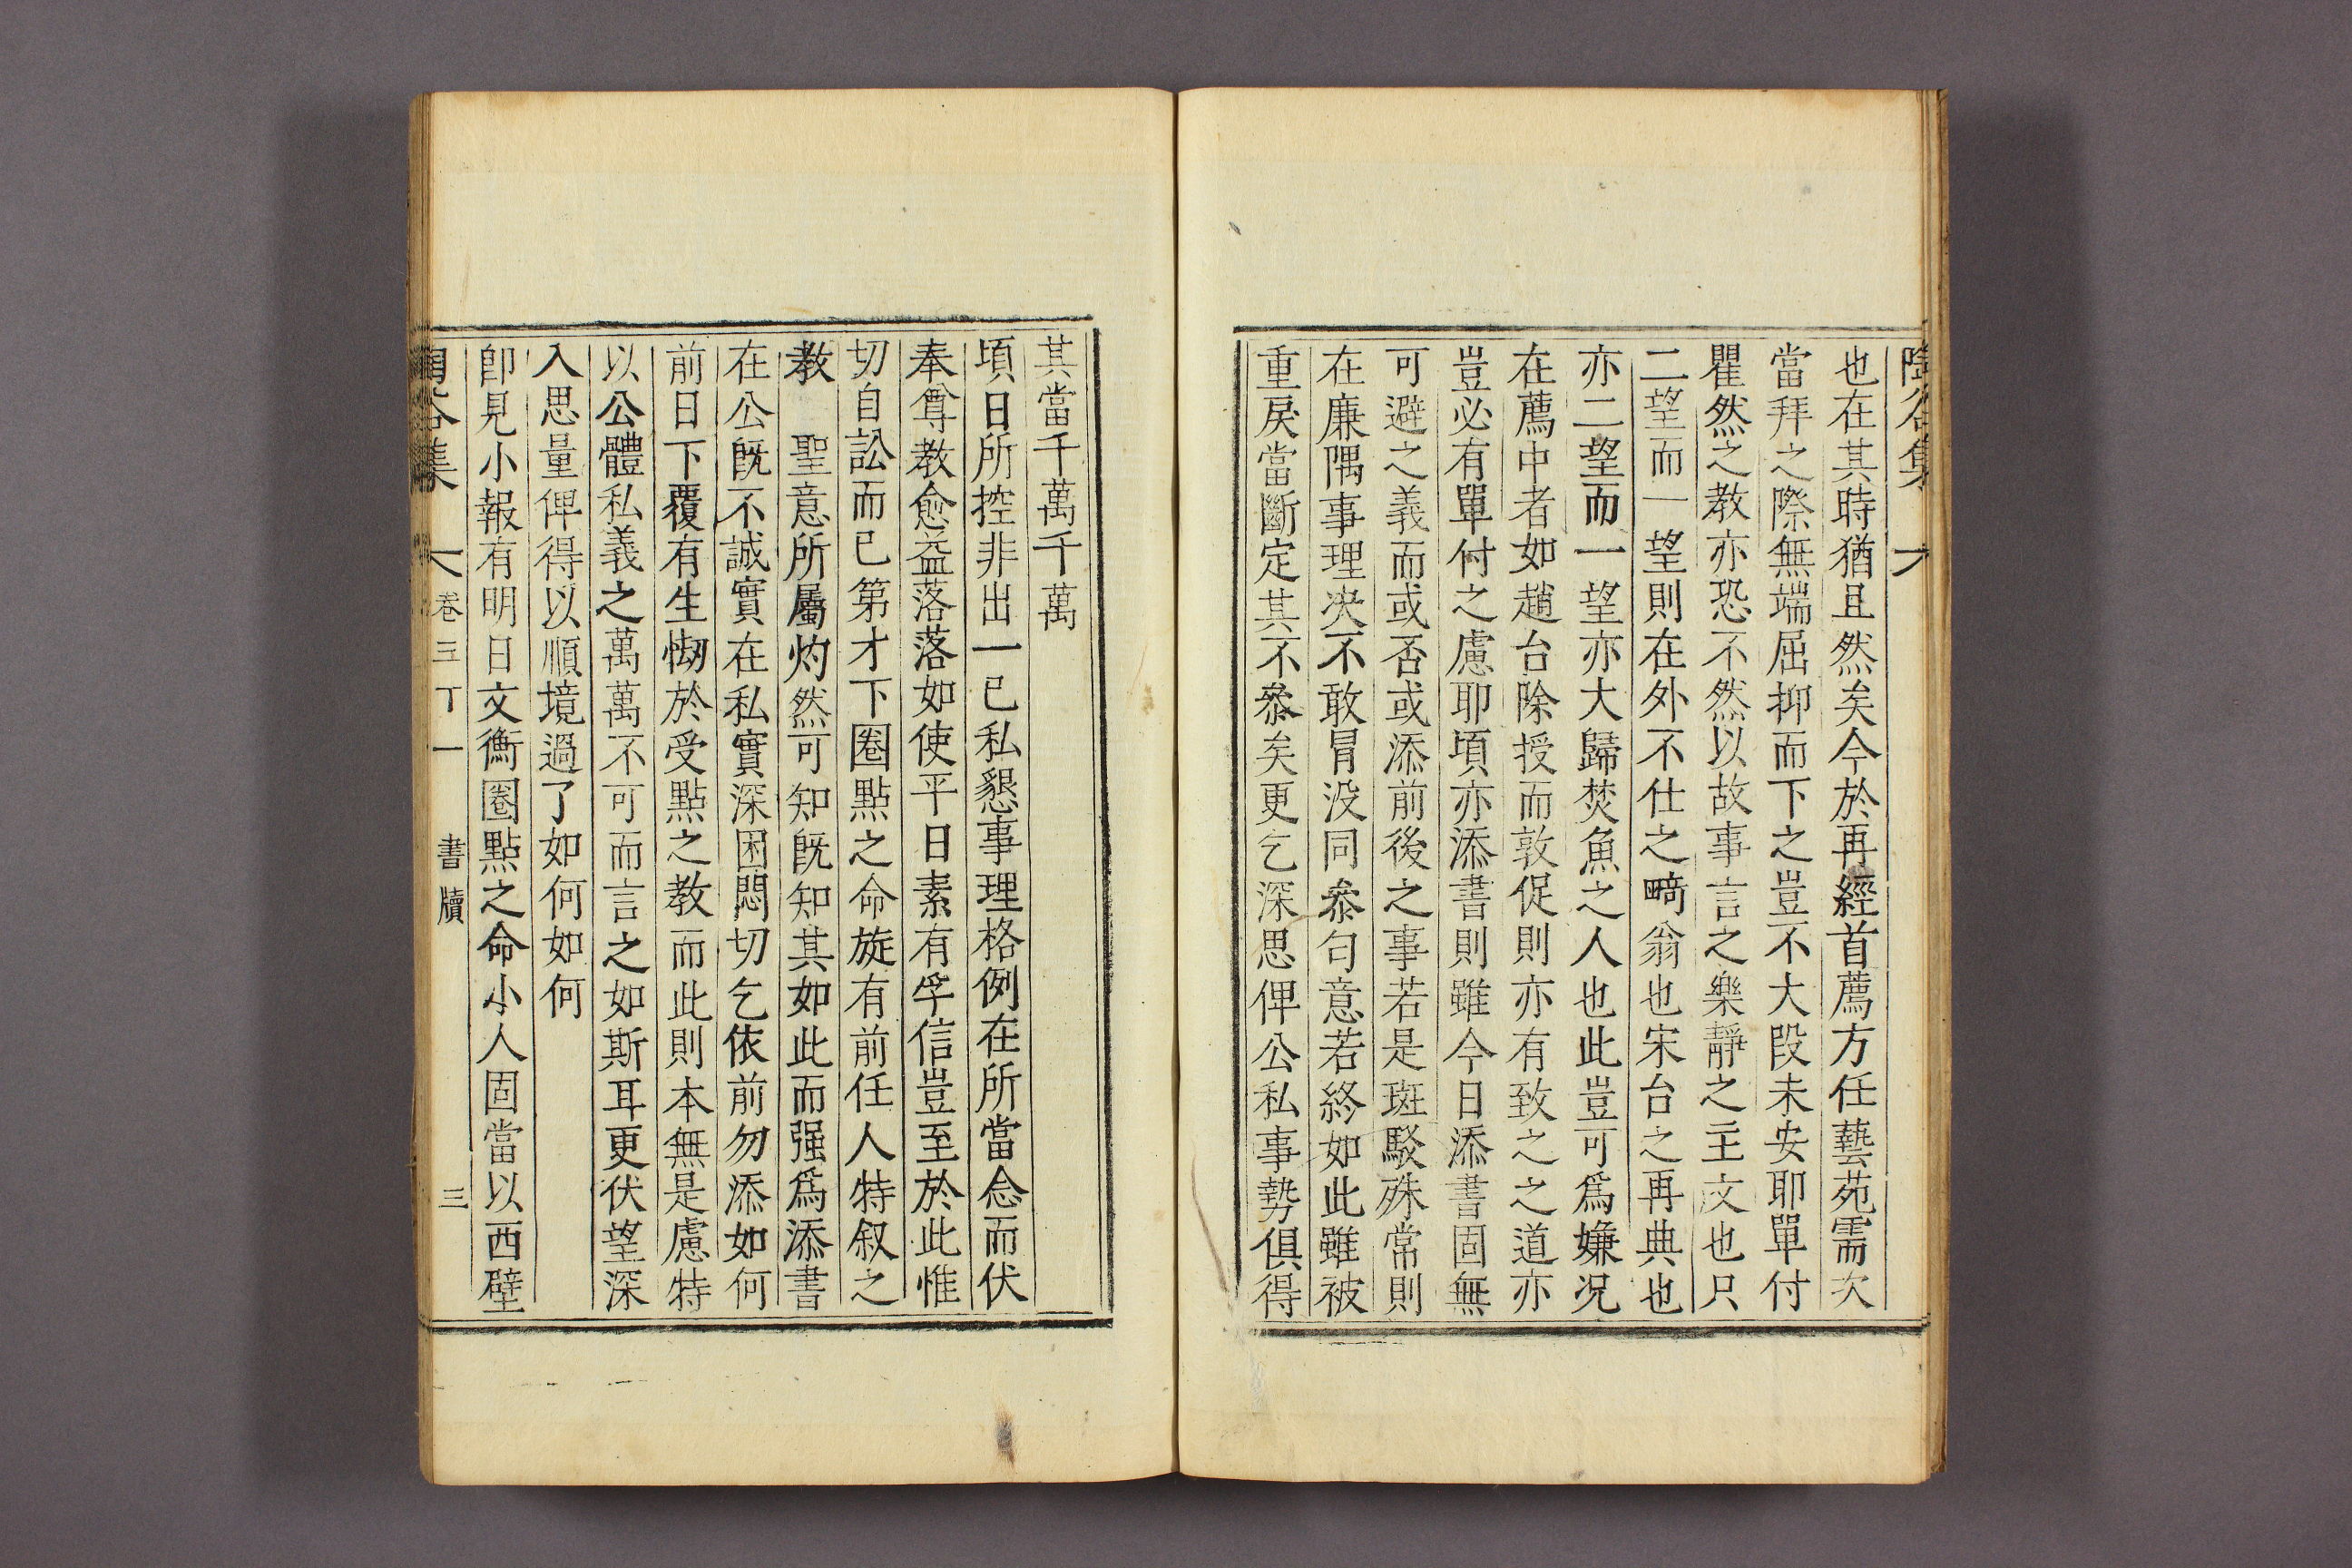 陶谷集
也在其時猶且然矣今於再經首薦方任藝苑需次
當拜之際無端屈抑而下之豈不大段未安耶單付
瞿然之教亦恐不然以故事言之樂靜之主文也只
二望而一望則在外不仕之畸翁也宋台之再典也
亦二望而一望亦大歸焚魚之人也此豈可爲嫌况
在薦中者如趙台除授而敦促則亦有致之之道亦
豈必有單付之慮耶頃亦添書則雖今日添書固無
可避之義而或否或添前後之事若是斑駁殊常則
在廉隅事理决不敢冒没同叅勻意若終如此雖被
重戾當斷定其不叅矣更乞深思俾公私事勢俱得
其當千萬千萬
頃日所控非出一已私懇事理格例在所當念而伏
奉尊教愈益落落如使平日素有孚信豈至於此惟
切自訟而已第才下圈點之命旋有前任人特叙之
教 聖意所屬灼然可知旣知其如此而强爲添書
在公旣不誠實在私實深困悶切乞依前勿添如何
前日下覆有生㤼於受點之教而此則本無是慮特
以公體私義之萬萬不可而言之如斯耳更伏望深
入思量俾得以順境過了如何如何
卽見小報有明日文衡圈點之命小人固當以西壁
陶谷集 卷三丁一 書牘 三